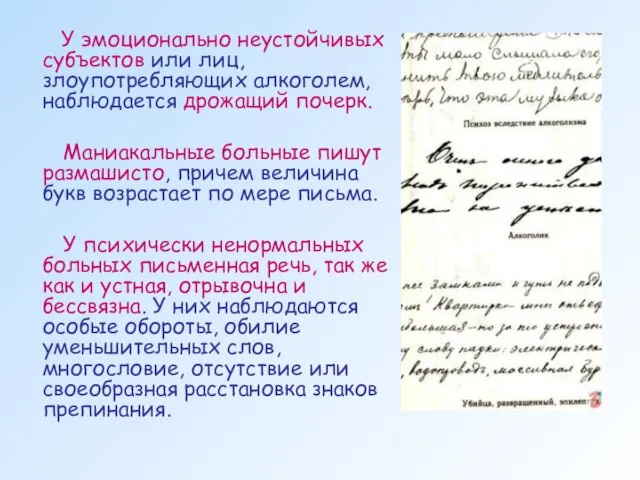 У эмоционально неустойчивых
субъектов или лиц,
злоупотребляющих алкоголем,
наблюдается дрожащий почерк.
Маниакальные больные пишут
размашисто, причем величина
букв возрастает по мере письма.
У психически ненормальных
больных письменная речь, так же
как и устная, отрывочна и
бессвязна. У них наблюдаются
особые обороты, обилие
уменьшительных слов,
многословие, отсутствие или
своеобразная расстановка знаков
препинания.
ты мало слышала его
нить твою медлитель
что эта музыка о
Психоз вследствие алкоголизма
Очень много
на
Алкоголик
замками и чуть не под
Квартирка мои отвед
большая - но за то устроен
слову науки: электрическ
водопровод, массивная
Убийца, развращенный, эпилептик